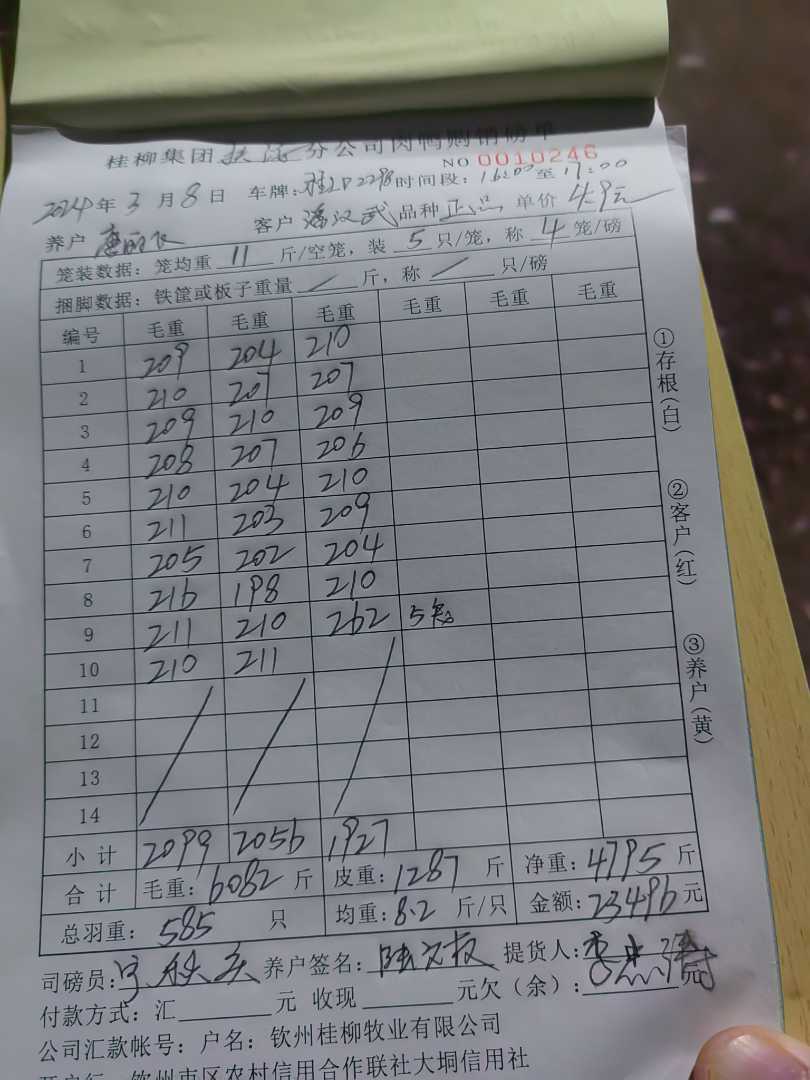 桂柳集团 分公司肉鸭购销磅单
NO 0010246
2024年3月8日 车牌: 时间段:16:00至17:00
养户 客户 潘汉武 品种 正品 单价 4.9元
笼装数据:笼均重 11 斤/空笼,装 5 只/笼,称 4 笼/磅
捆脚数据:铁筐或板子重量 / 斤,称 / 只/磅
编号 毛重 毛重 毛重 毛重 毛重 毛重
1 209 204 210
2 210 207 207
3 209 210 209
4 208 207 206
5 210 204 210
6 211 203 209
7 205 202 204
8 216 198 210
9 211 210 262 5笼
10 210 211
11
12
13
14
小计 2099 2056 1927
合计 毛重:6082斤 皮重:1287斤 净重:4795斤
总羽重:585只 均重:8.2斤/只 金额:23496元
司磅员: 养户签名: 提货人:
付款方式:汇 元 收现 元欠(余): 元
公司汇款帐号:户名:钦州桂柳牧业有限公司
开户行:钦州市区农村信用合作联社大垌信用社
①存根(白)
②客户(红)
③养户(黄)